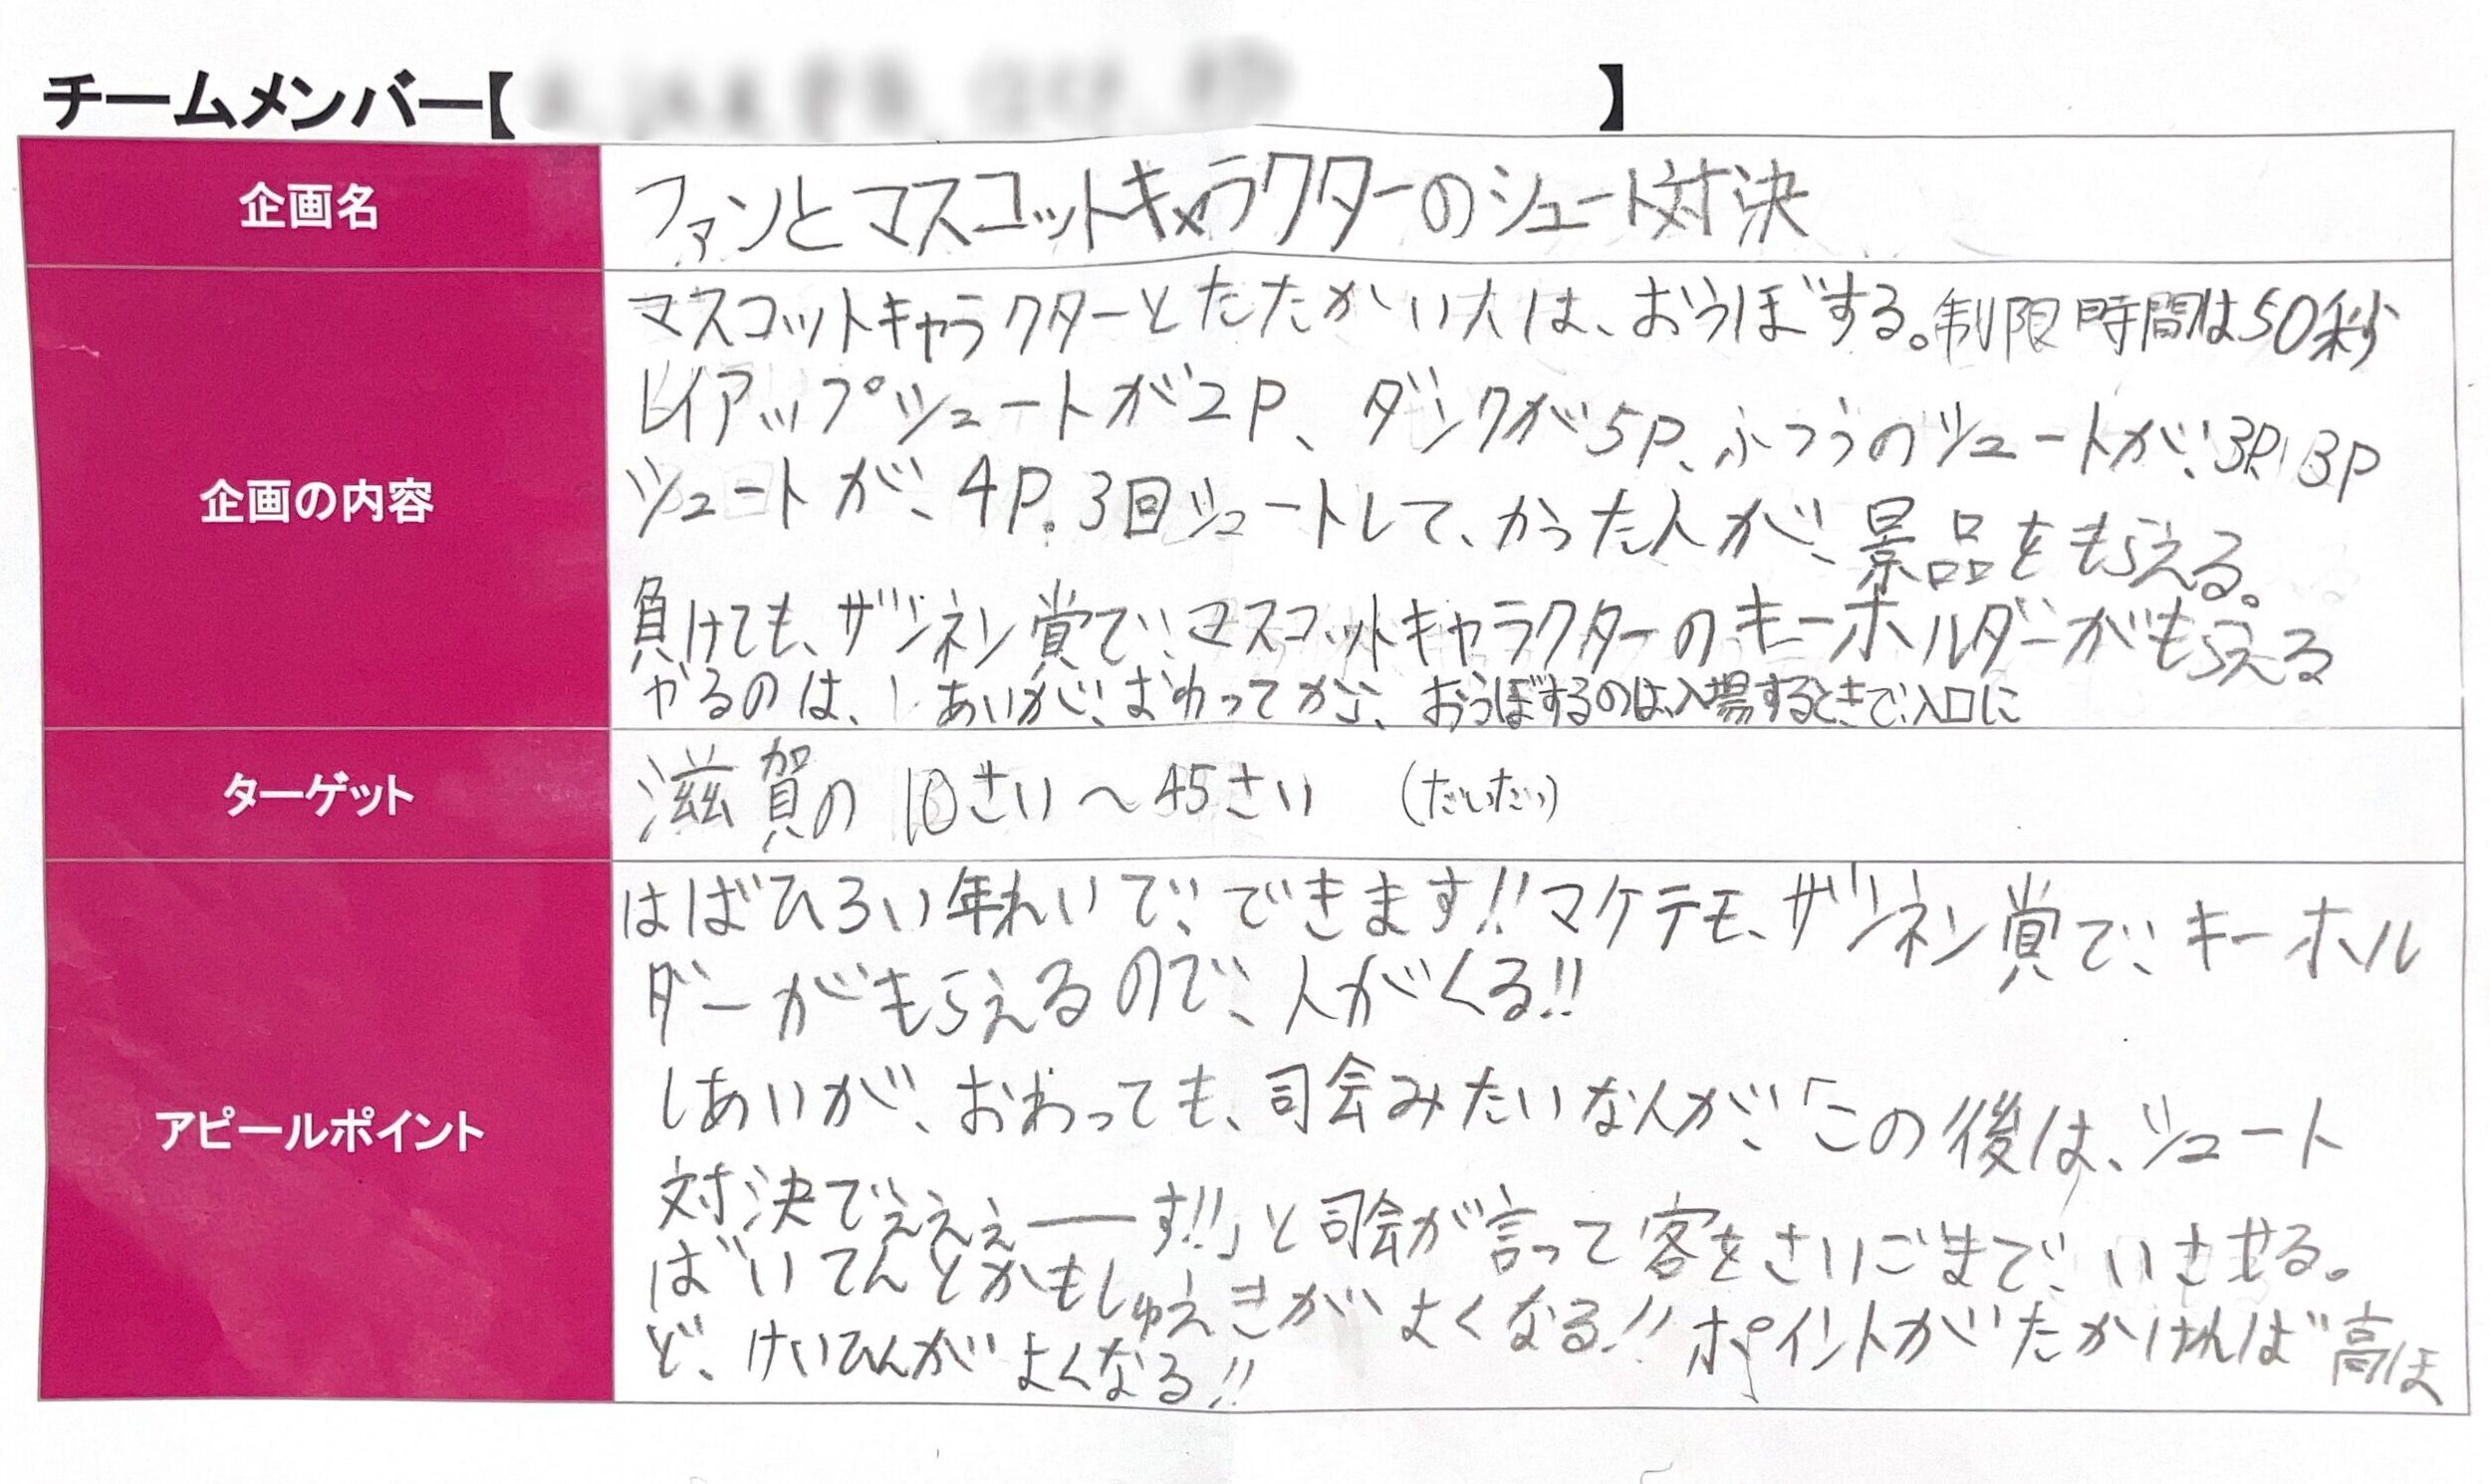 チームメンバー【 】
企画名
ファンとマスコットキャラクターのシュート対決
企画の内容
マスコットキャラクターとたたかい人は、おうぼする。制限時間は50秒
レイアップシュートが2P、ダンクが5P、ふつうのシュートが、3P、3P
シュートが、4P。3回シュートして、かった人が、景品をもらえる。
負けても、ザンネン賞で、マスコットキャラクターのキーホルダーがもらえる
やるのは、しあいが、おわってから、おうぼするのは、入場するときで、入口に
ターゲット
滋賀の10さい〜45さい (だいたい)
アピールポイント
はばひろい年れいで、できます!!マケテモ、ザンネン賞で、キーホル
ダーがもらえるので、人がくる!!
しあいが、おわっても、司会みたいな人が、「この後は、シュート
対決でぇぇぇーす!!」と司会が言って客をさいごまで、いさせる。
ばいてんとかもしゅえきがよくなる!!ポイントがたかければ高ほ
ど、けいひんがよくなる!!